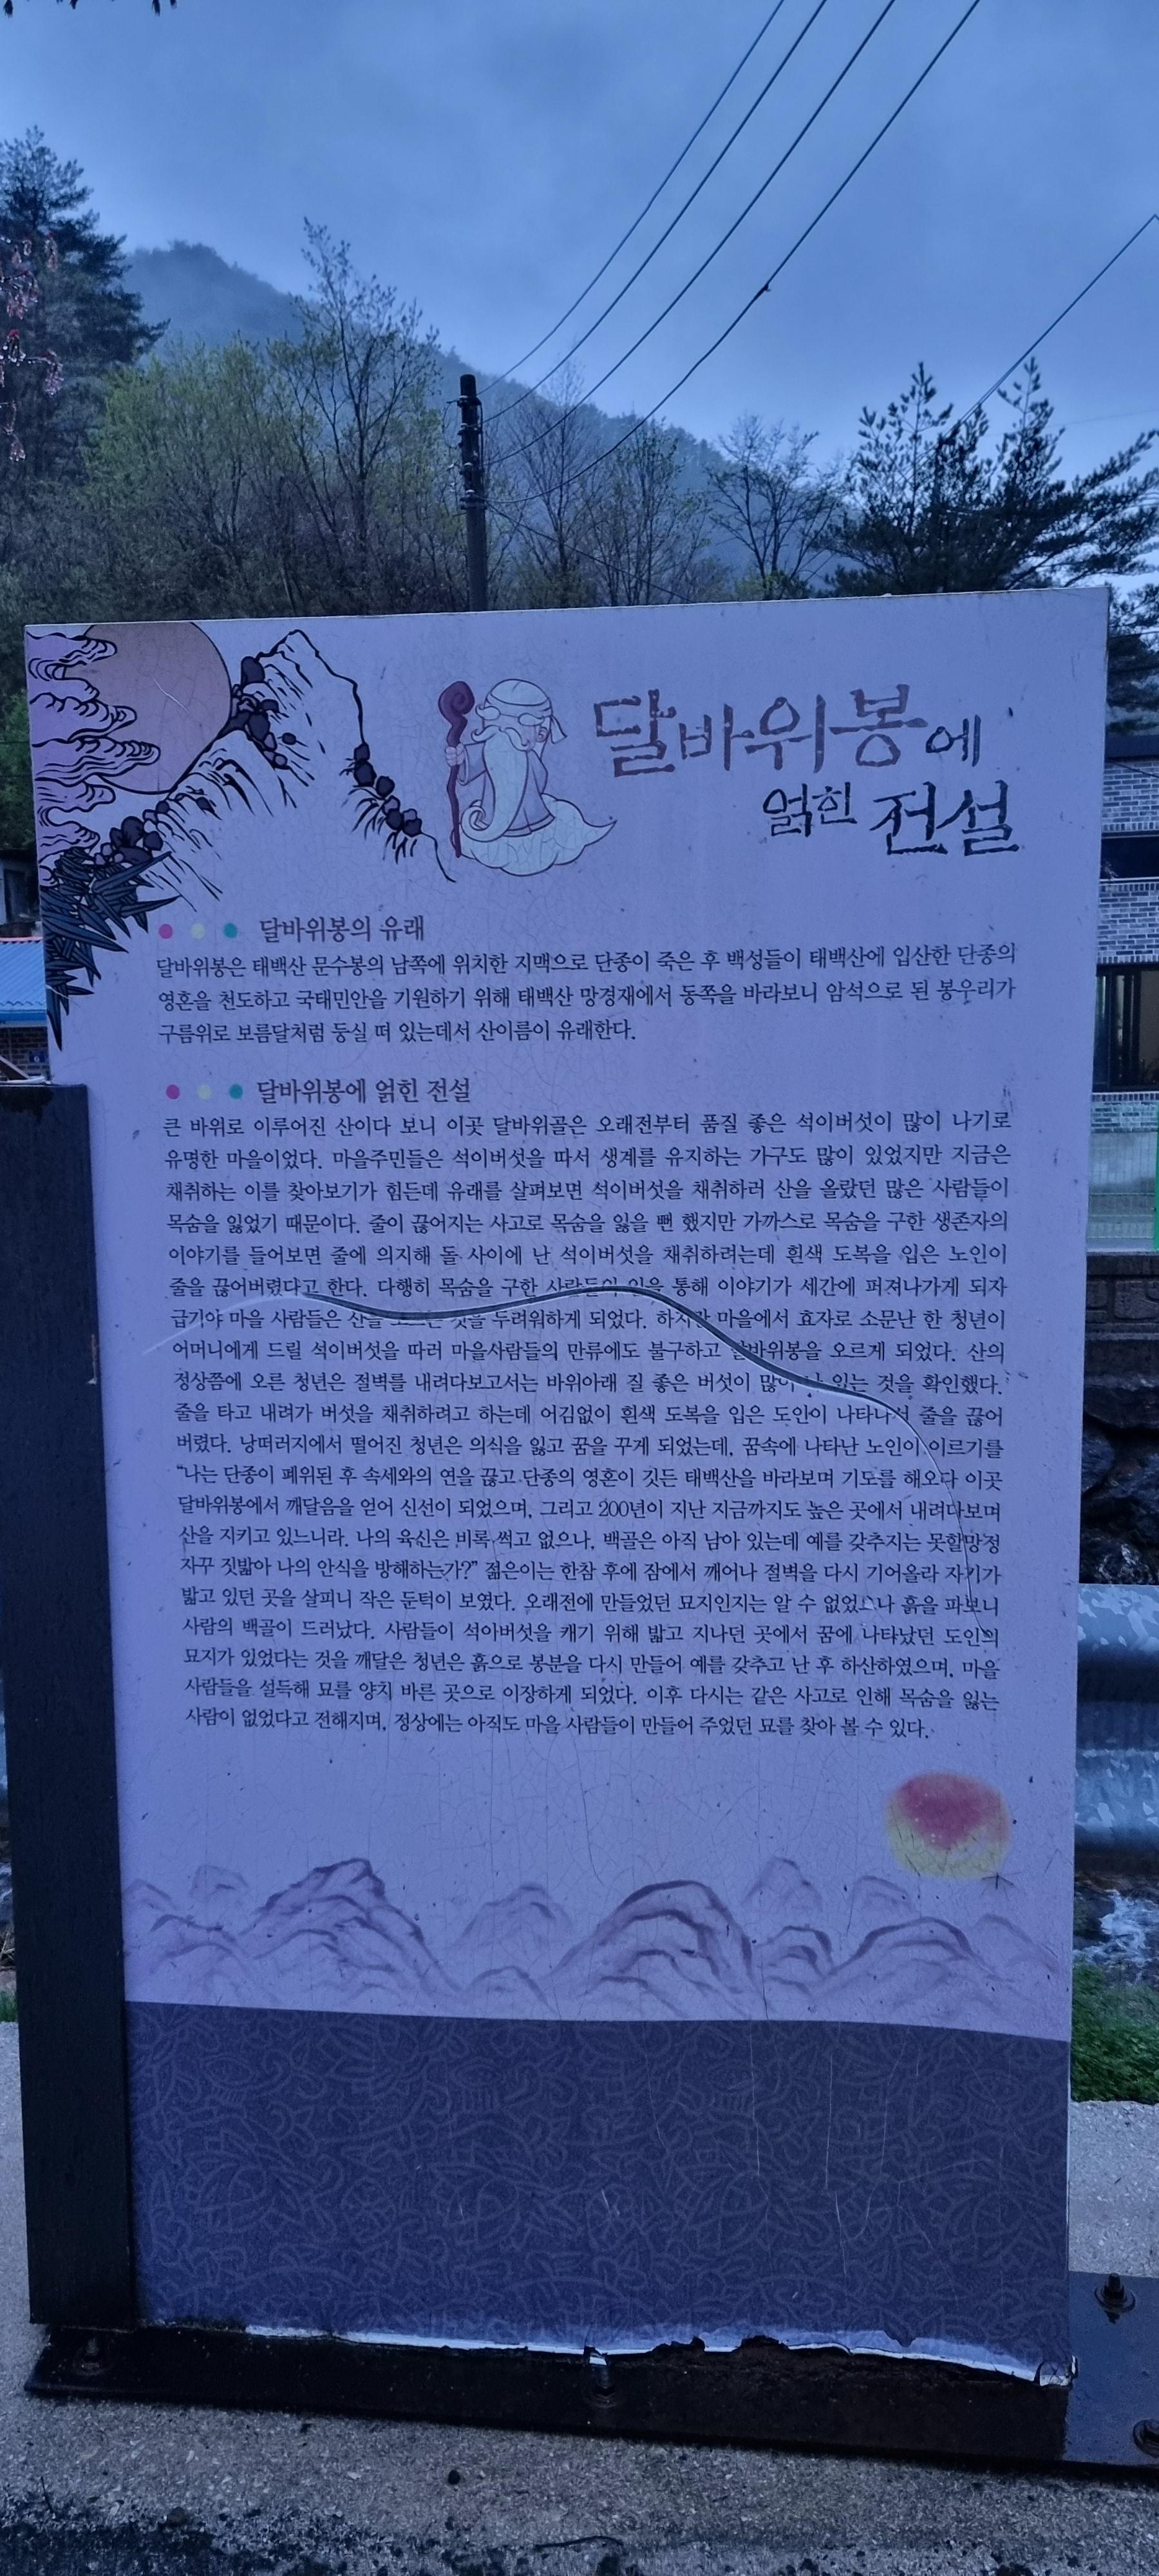 달바위봉에
얽힌 전설
달바위봉의 유래
달바위봉은 태백산 문수봉의 남쪽에 위치한 지맥으로 단종이 죽은 후 백성들이 태백산에 입산한 단종의
영혼을 천도하고 국태민안을 기원하기 위해 태백산 망경재에서 동쪽을 바라보니 암석으로 된 봉우리가
구름위로 보름달처럼 둥실 떠 있는데서 산이름이 유래한다.
달바위봉에 얽힌 전설
큰 바위로 이루어진 산이다 보니 이곳 달바위골은 오래전부터 품질 좋은 석이버섯이 많이 나기로
유명한 마을이었다. 마을주민들은 석이버섯을 따서 생계를 유지하는 가구도 많이 있었지만 지금은
채취하는 이를 찾아보기가 힘든데 유래를 살펴보면 석이버섯을 채취하러 산을 올랐던 많은 사람들이
목숨을 잃었기 때문이다. 줄이 끊어지는 사고로 목숨을 잃을 뻔 했지만 가까스로 목숨을 구한 생존자의
이야기를 들어보면 줄에 의지해 돌 사이에 난 석이버섯을 채취하려는데 흰색 도복을 입은 노인이
줄을 끊어버렸다고 한다. 다행히 목숨을 구한 사람들의 입을 통해 이야기가 세간에 퍼져나가게 되자
급기야 마을 사람들은 산을 것을 두려워하게 되었다. 하지만 마을에서 효자로 소문난 한 청년이
어머니에게 드릴 석이버섯을 따러 마을사람들의 만류에도 불구하고 달바위봉을 오르게 되었다. 산의
정상쯤에 오른 청년은 절벽를 내려다보고서는 바위아래 질 좋은 버섯이 많이 나 있는 것을 확인했다.
줄을 타고 내려가 버섯을 채취하려고 하는데 어김없이 흰색 도복을 입은 도인이 나타나서 줄을 끊어
버렸다. 낭떠러지에서 떨어진 청년은 의식을 잃고 꿈을 꾸게 되었는데, 꿈속에 나타난 노인이 이르기를
“나는 단종이 폐위된 후 속세와의 연을 끊고 단종의 영혼이 깃든 태백산을 바라보며 기도를 해오다 이곳
달바위봉에서 깨달음을 얻어 신선이 되었으며, 그리고 200년이 지난 지금까지도 높은 곳에서 내려다보며
산을 지키고 있느니라. 나의 육신은 비록 썩고 없으나, 백골은 아직 남아 있는데 예를 갖추지는 못할망정
자꾸 짓밟아 나의 안식을 방해하는가?” 젊은이는 한참 후에 잠에서 깨어나 절벽을 다시 기어올라 자기가
밟고 있던 곳을 살피니 작은 둔턱이 보였다. 오래전에 만들었던 묘지인지는 알 수 없었으나 흙을 파보니
사람의 백골이 드러났다. 사람들이 석아버섯을 캐기 위해 밟고 지나던 곳에서 꿈에 나타났던 도인의
묘지가 있었다는 것을 깨달은 청년은 흙으로 봉분을 다시 만들어 예를 갖추고 난 후 하산하였으며, 마을
사람들을 설득해 묘를 양치 바른 곳으로 이장하게 되었다. 이후 다시는 같은 사고로 인해 목숨을 잃는
사람이 없었다고 전해지며, 정상에는 아직도 마을 사람들이 만들어 주었던 묘를 찾아 볼 수 있다.